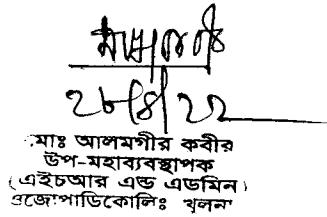 ২৮/৪/২২
মোঃ আলমগীর কবীর
উপ-মহাব্যবস্থাপক
(এইচআর এন্ড এডমিন)
ওজোপাডিকোলিঃ খুলনা